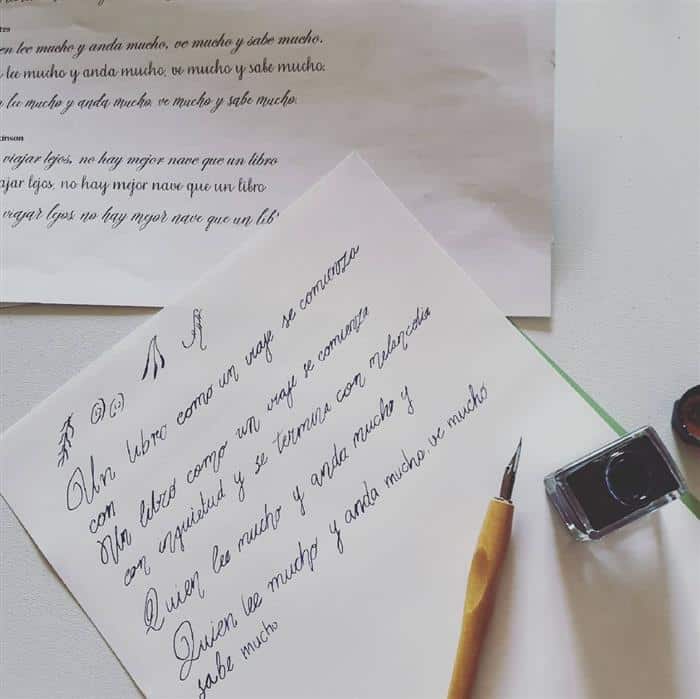 en lee mucho y anda mucho, ve mucho y sabe mucho.
lee mucho y anda mucho, ve mucho y sabe mucho.
lee mucho y anda mucho, ve mucho y sabe mucho.
kinson
viajar lejos, no hay mejor nave que un libro
ajar lejos, no hay mejor nave que un libro
viajar lejos, no hay mejor nave que un lib
Un libro como un viaje se comienza
con
Un libro como un viaje se comienza
con inquietud y se termina con melancolia
Quien lee mucho y anda mucho y
Quien lee mucho y anda mucho, ve mucho
sabe mucho